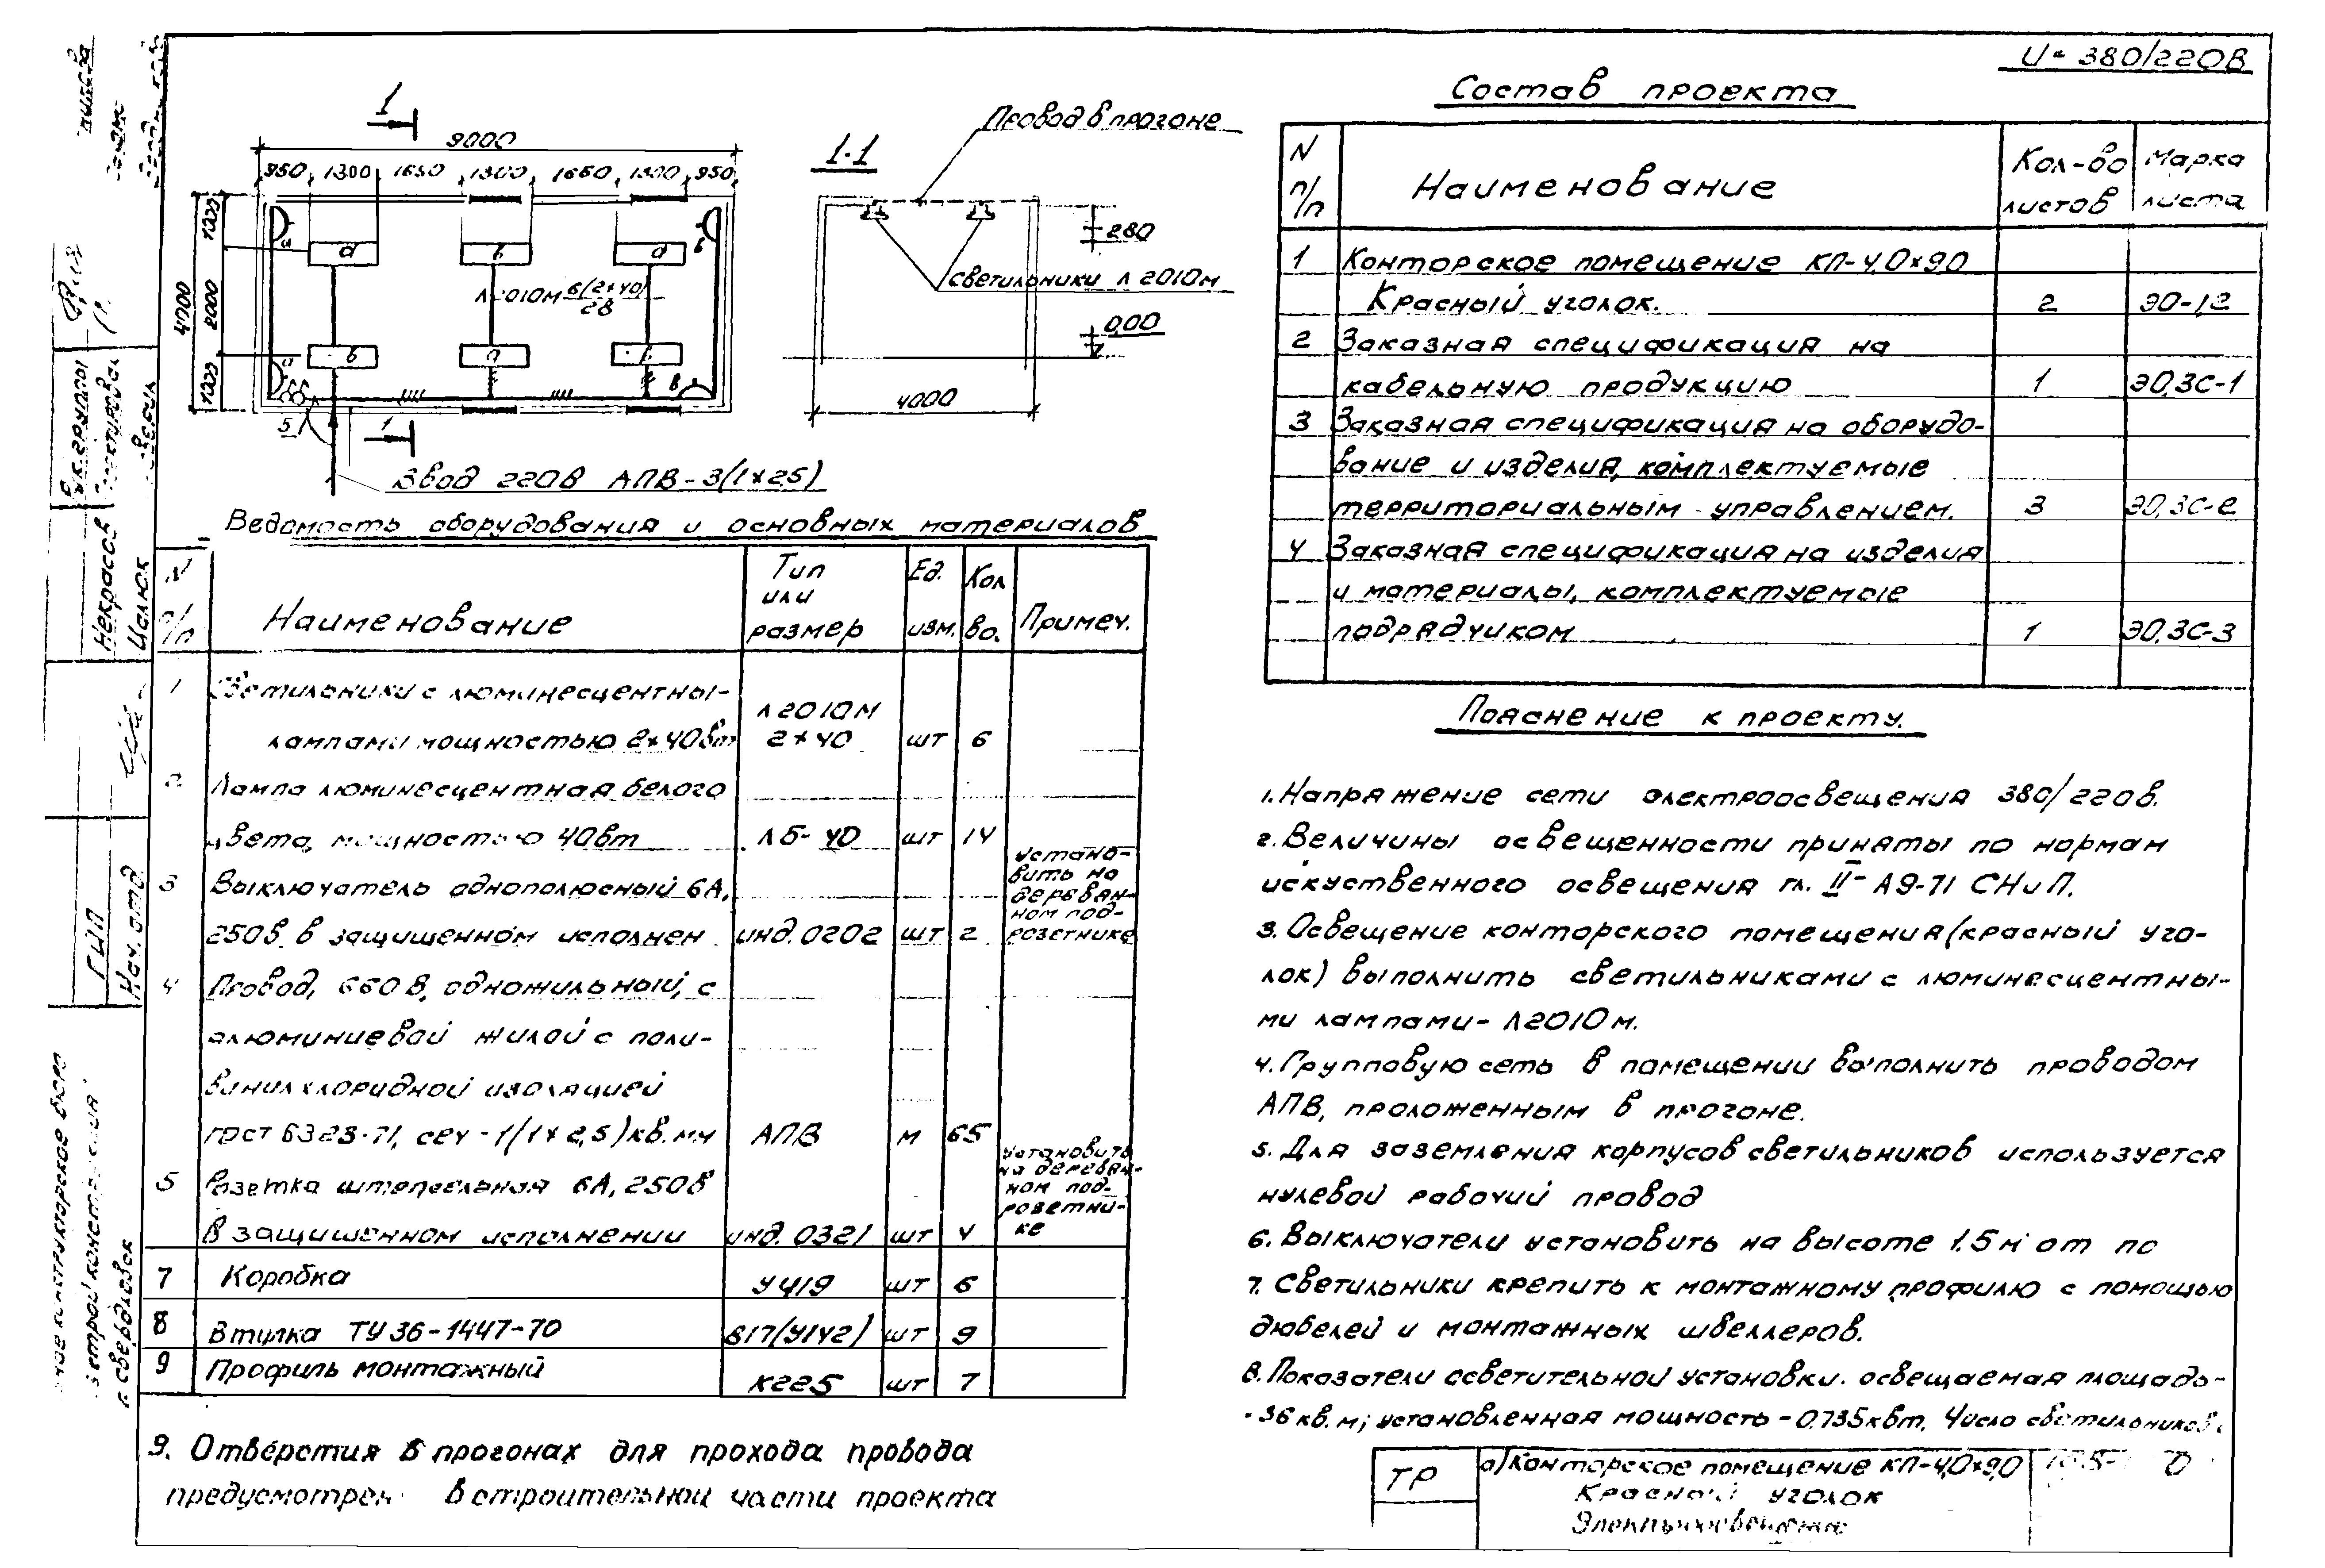 U= 380/220В
1
9000
950 1300 1650 1300 1650 1300 950
1000
2000
1000
4000
а в а
6(2×40)
2.8
в а
5
1
Ввод 220В АПВ-3(1×2,5)
1-1
Провод в прогоне
280
светильники Л2010м
0,00
4000
Ведомость оборудования и основных материалов
N п/п Наименование Тип или размер Ед. изм. Кол во. Примеч.
1 Светильники с люминесцентны-
лампами мощностью 2×40вт Л2010М 2×40 шт 6
2 Лампа люминесцентная белого
цвета, мощностью 40вт ЛБ-40 шт 14
3 Выключатель однополюсный 6А,
250в. в защищенном исполнен инд.0202 шт 2 Устано-
вить на
деревян-
ном под-
розетнике
4 Провод, 660В, одножильный, с
алюминиевой жилой с поли-
винилхлоридной изоляцией
гост 6323-71, сеч-1(1×2,5)кв.мм АПВ м 65
5 Розетка штепсельная 6А, 250в
в защищенном исполнении инд.0321 шт 4 Установить
на деревян-
ном под-
розетни-
ке
7 Коробка У419 шт 6
8 Втулка ТУ36-1447-70 В17(У142) шт 9
9 Профиль монтажный К225 шт 7
9. Отверстия в прогонах для прохода провода
предусмотрен в строительной части проекта
Состав проекта
N п/п Наименование Кол-во листов Марка листа
1 Конторское помещение КП-4,0×9,0
Красный уголок. 2 ЭО-1,2
2 Заказная спецификация на
кабельную продукцию 1 ЭО,ЗС-1
3 Заказная спецификация на оборудо-
вание и изделия, комплектуемые
территориальным управлением. 3 ЭО,ЗС-2
4 Заказная спецификация на изделия
и материалы, комплектуемые
подрядчиком 1 ЭО,ЗС-3
Пояснение к проекту.
1. Напряжение сети электроосвещения 380/220в.
2. Величины освещенности приняты по нормам
искуственного освещения гл. II-А9-71 СНиП.
3. Освещение конторского помещения (красный уго-
лок) выполнить светильниками с люминесцентны-
ми лампами-Л2010м.
4. Групповую сеть в помещении выполнить проводом
АПВ, проложенным в прогоне.
5. Для заземления корпусов светильников используется
нулевой рабочий провод
6. Выключатели установить на высоте 1.5м от по
7. Светильники крепить к монтажному профилю с помощью
дюбелей и монтажных швеллеров.
8. Показатели осветительной установки. освещаемая площадь-
-36кв.м; установленная мощность-0.735квт. Число светильников
ТР а) Конторское помещение КП-4,0×9,0
Красный уголок
Электроосвещение
Рук.группы
Некрасов
Цалюк
ГИП
Нач. отд.
конструкторское бюро
г. Свердловск